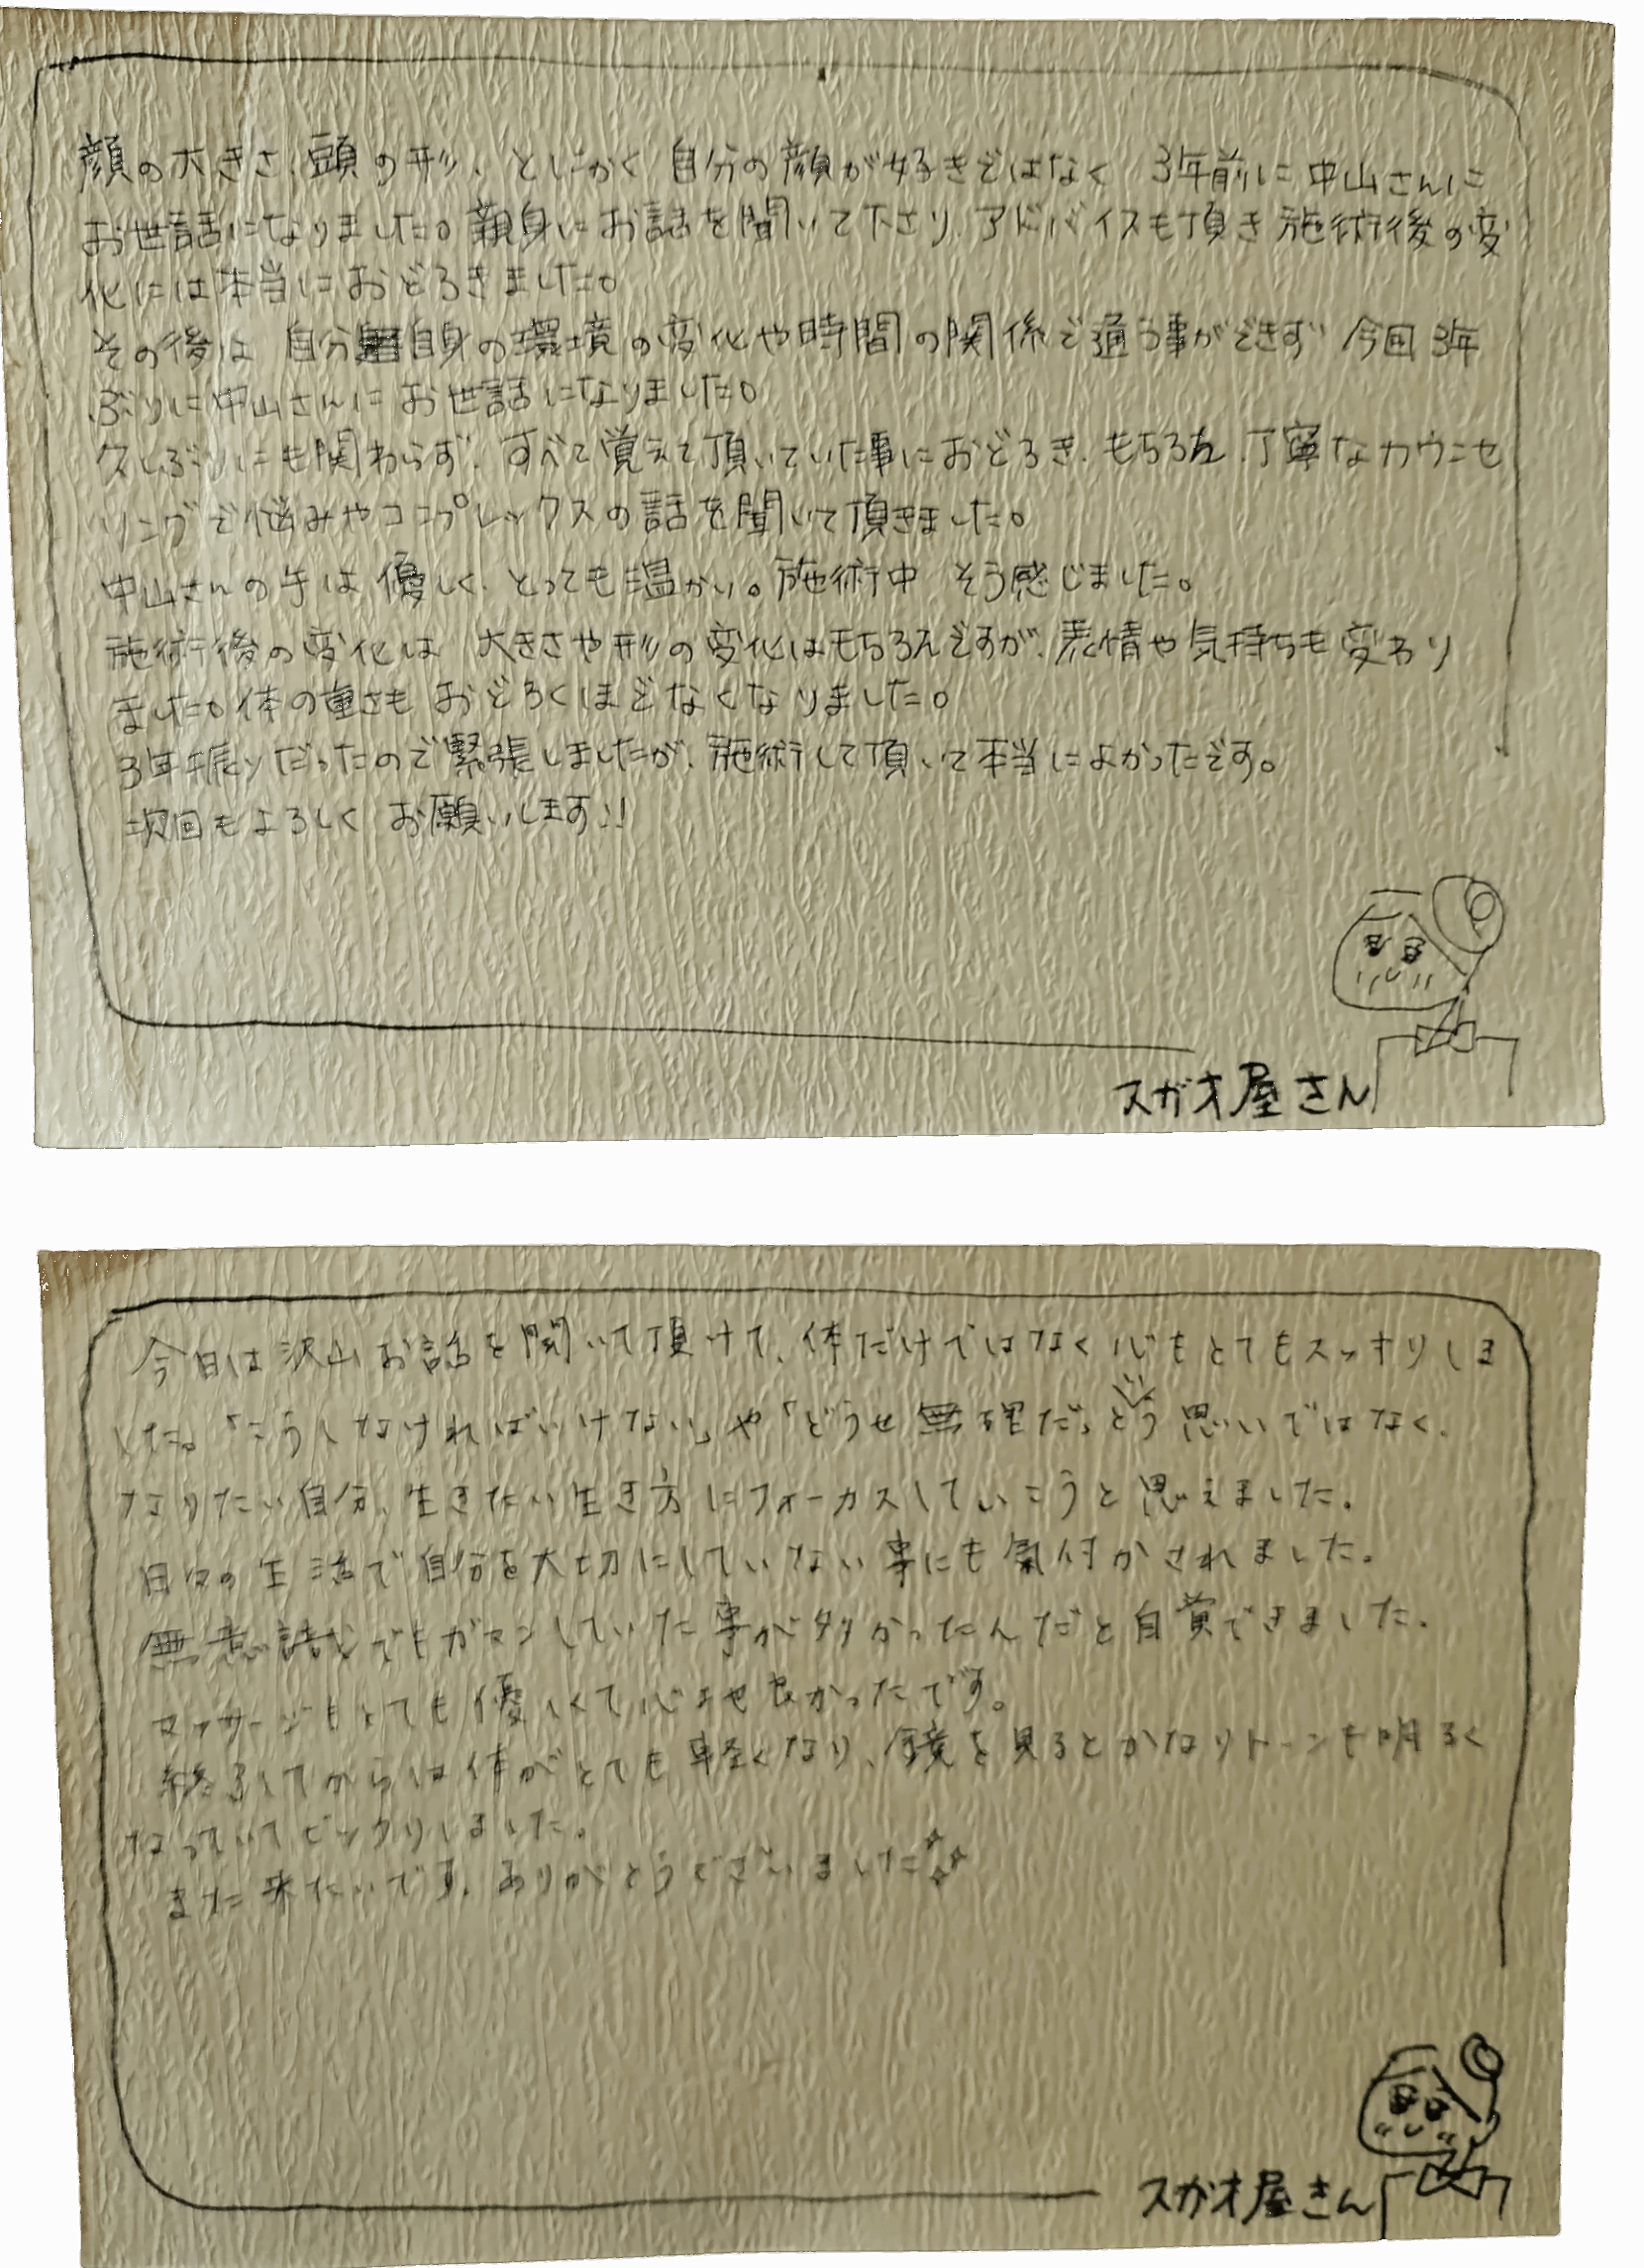 顔の大きさ、頭の形、とにかく 自分の顔が好きではなく 3年前に中山さんに
お世話になりました。親身にお話を聞いて下さり、アドバイスも頂き 施術後の変
化には本当におどろきました。
その後は 自分自身の環境の変化や時間の関係で通う事ができず 今回3年
ぶりに中山さんに お世話になりました。
久しぶりにも関わらず、すべて覚えて頂いていた事におどろき、もちろん、丁寧なカウンセ
リングで悩みやコンプレックスの話を聞いて頂きました。
中山さんの手は 優しく、とっても温かい。施術中 そう感じました。
施術後の変化は 大きさや形の変化はもちろんですが、表情や気持ちも変わり
ました。体の重さも おどろくほどなくなりました。
3年振りだったので緊張しましたが、施術して頂いて本当によかったです。
次回もよろしく お願いします!!
スガオ屋さん
今日は沢山お話を聞いて頂けて、体だけではなく心もとてもスッキリしま
した。「こうしなければいけない」や「どうせ無理だ」とう思いではなく、
なりたい自分、生きたい生き方にフォーカスしていこうと思えました。
日々の生活で自分を大切にしていない事にも氣付かされました。
無意識でもガマンしていた事が多かったんだと自覚できました。
マッサージもとても優しくて心地良かったです。
終了してからは体がとても軽くなり、鏡を見るとかなりトーンも明るく
なっていてビックリしました。
また来たいです。ありがとうございました
スガオ屋さん